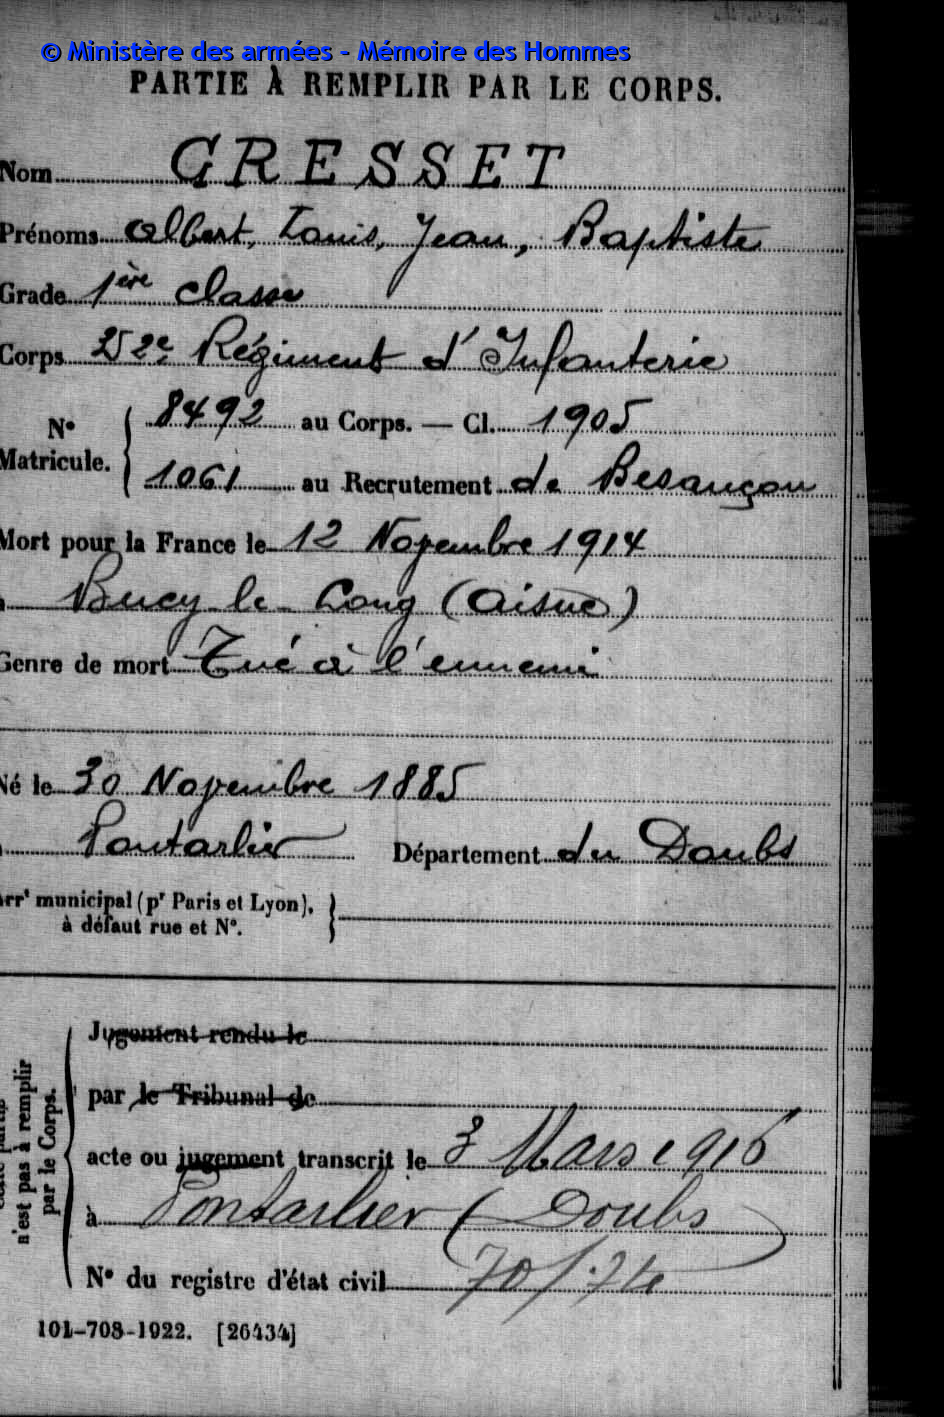 © Ministère des armées - Mémoire des Hommes
PARTIE À REMPLIR PAR LE CORPS.
Nom GRESSET
Prénoms Albert, Louis, Jean, Baptiste
Grade 1ère classe
Corps Régiment d'Infanterie
8492 au Corps. — Cl. 1905
N°
Matricule.
1061 au Recrutement de Besançon
Mort pour la France le 12 Novembre 1914
Bucy le Long (Aisne)
Genre de mort Tué à l'ennemi
Né le 30 Novembre 1885
Pontarlier Département du Doubs
Arrt municipal (pr Paris et Lyon),
à défaut rue et N°.
Jugement rendu le
par le Tribunal de
acte ou jugement transcrit le 3 Mars 1916
à Pontarlier (Doubs)
N° du registre d'état civil
n'est pas à remplir
par le Corps.
101-708-1922. [26434]